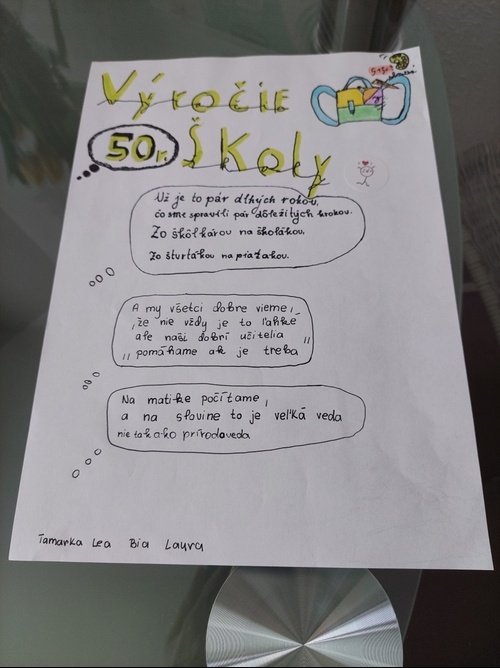 Výročie
50r. Školy
Už je to pár dlhých rokov,
čo sme spravili pár dôležitých krokov.
Zo škôlkárou na školákou.
Zo štvrťákou na piatakou.
A my všetci dobre vieme,
že nie vždy je to ľahké
ale naši dobrí učitelia
,, pomáhame ak je treba "
Na matike počítame,
a na slovine to je veľká veda
nie tak ako prírodoveda
Tamarka Lea Bia Laura